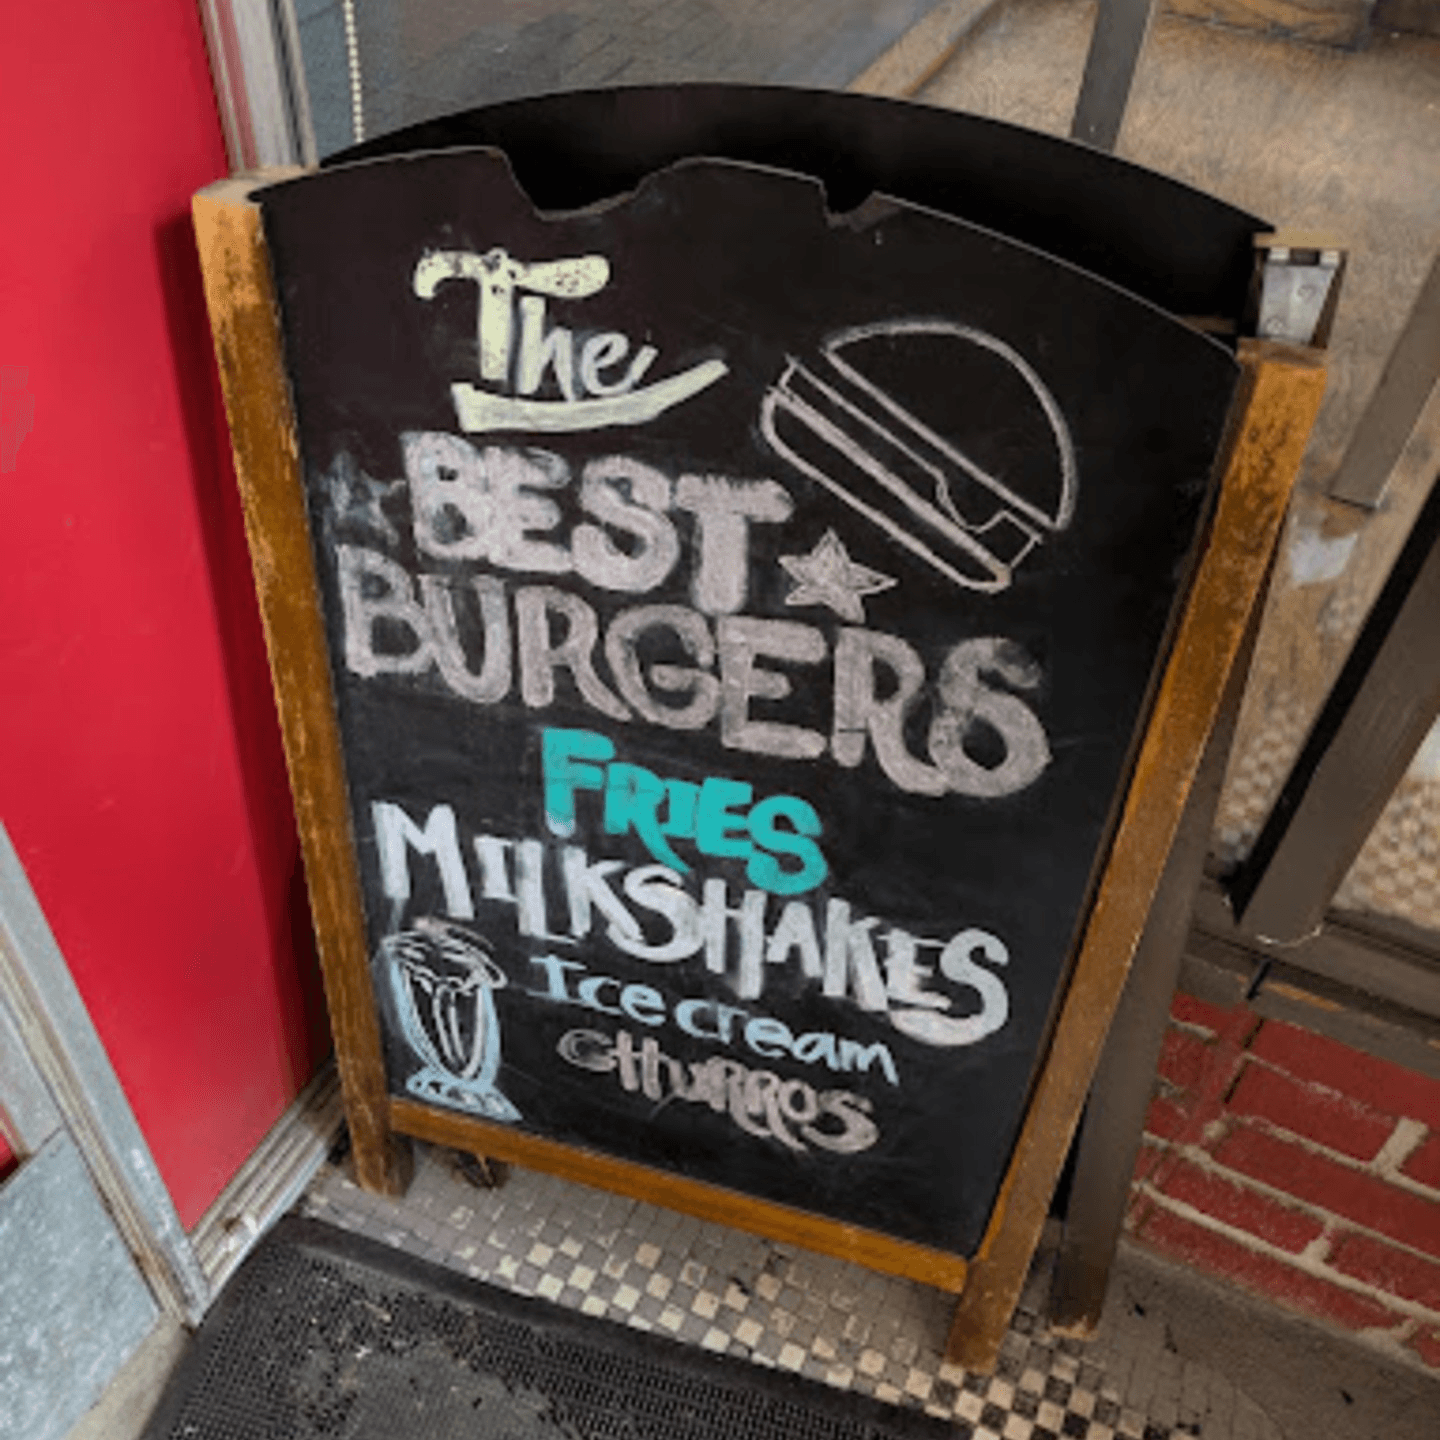 The
BEST
BURGERS
FRIES
MILKSHAKES
Ice cream
CHURROS